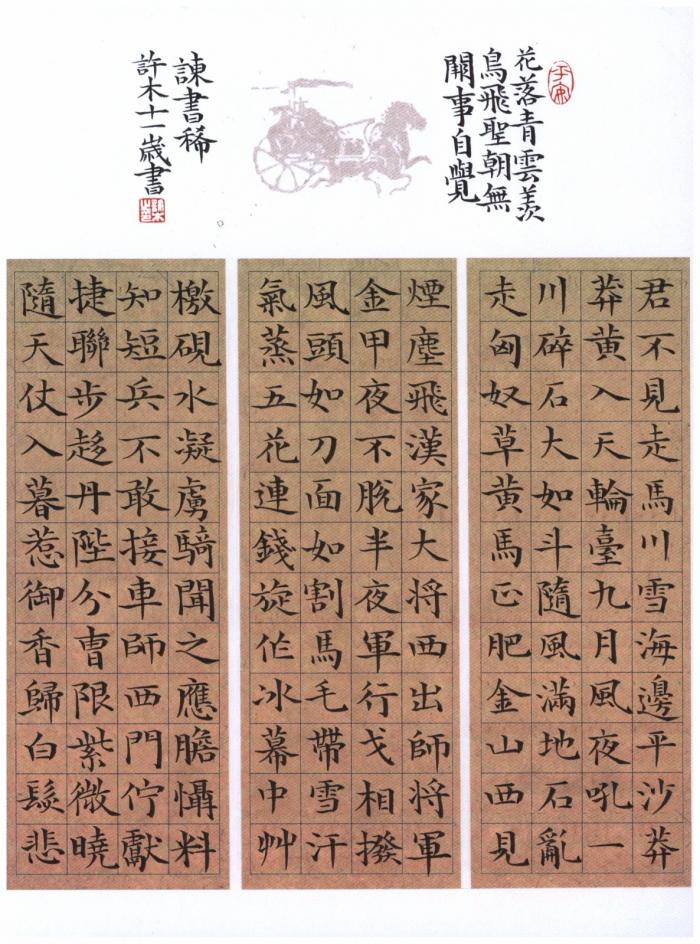 君不見走馬川雪海邊平沙莽
莽黃入天輪臺九月風夜吼一
川碎石大如斗隨風滿地石亂
走匈奴草黃馬正肥金山西見
煙塵飛漢家大將西出師將軍
金甲夜不脫半夜軍行戈相撥
風頭如刀面如割馬毛帶雪汗
氣蒸五花連錢旋作冰幕中艸
檄硯水凝虜騎聞之應膽懾料
知短兵不敢接車師西門佇獻
捷聯步趍丹陛分曹限紫微曉
隨天仗入暮惹御香歸白髮悲
花落青雲羨
鳥飛聖朝無
闕事自覺
諫書稀
許木十一歲書